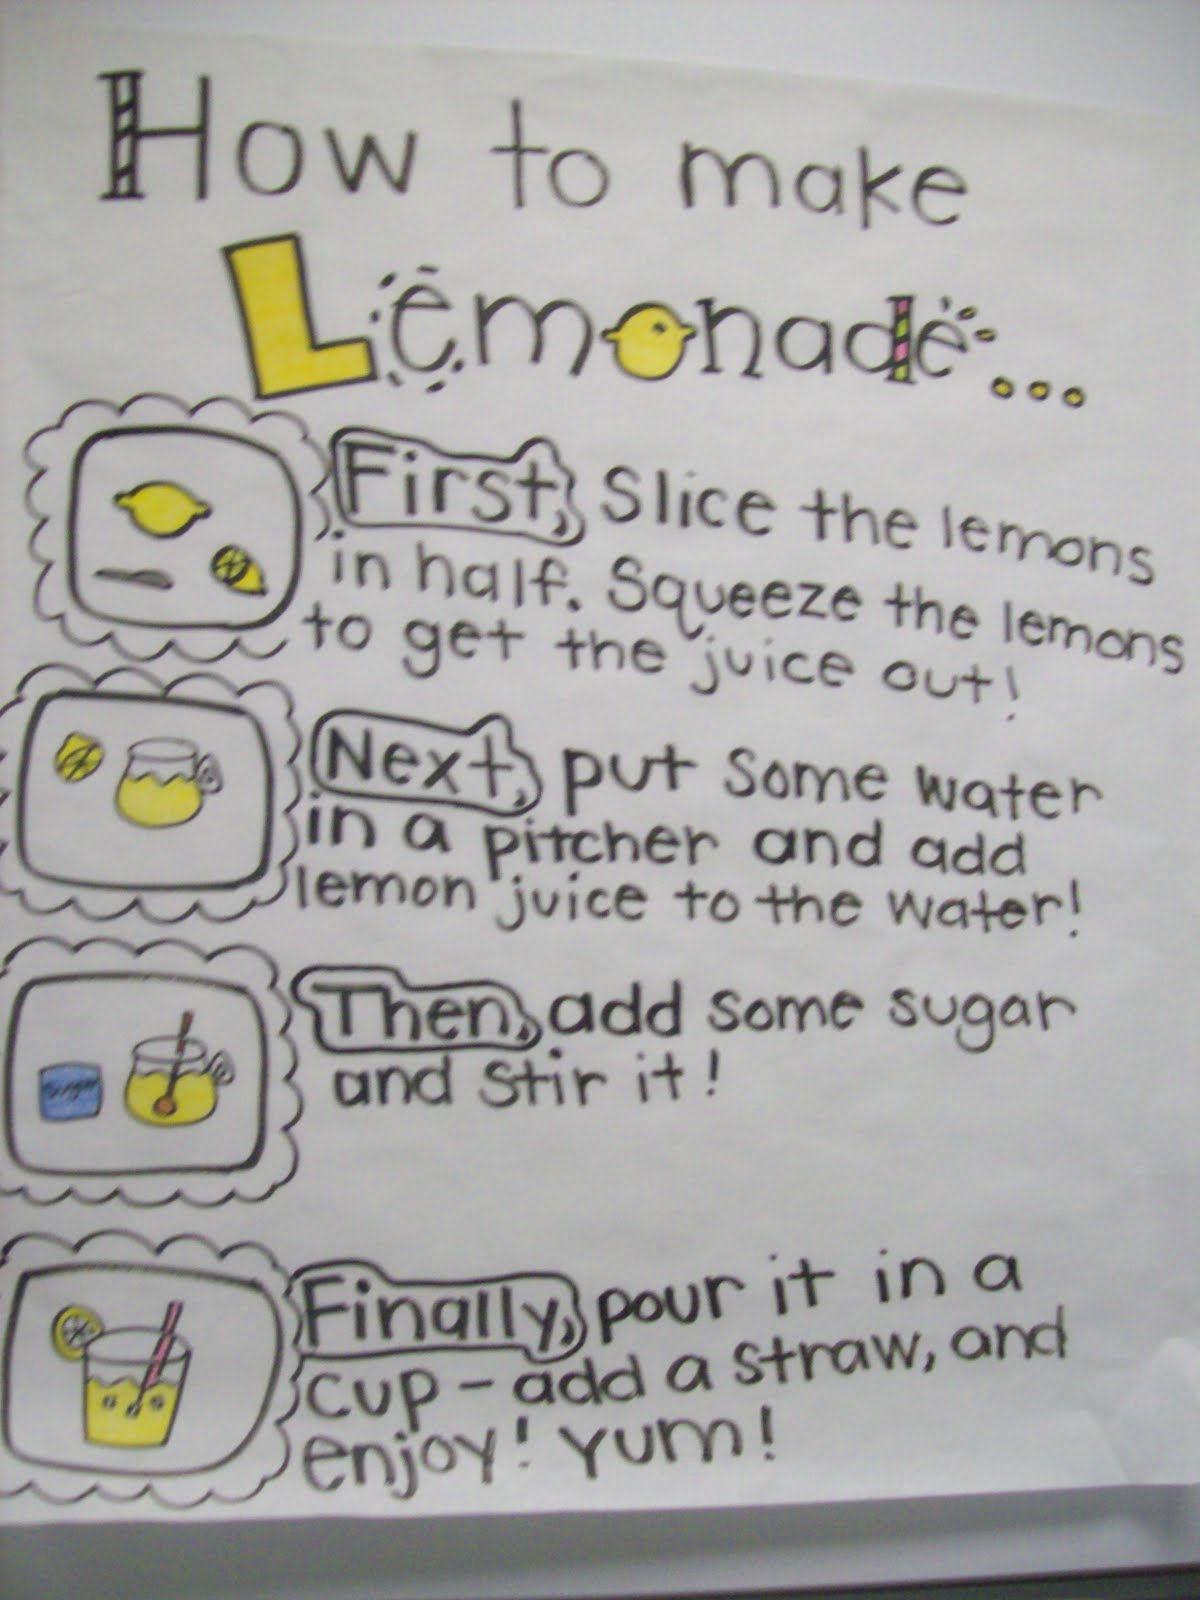 How to make
Lemonade...
First, Slice the lemons
in half. Squeeze the lemons
to get the juice out!
Next, put some water
in a pitcher and add
lemon juice to the water!
Then, add some sugar
and stir it!
Sugar
Finally, pour it in a
cup - add a straw, and
enjoy! Yum!